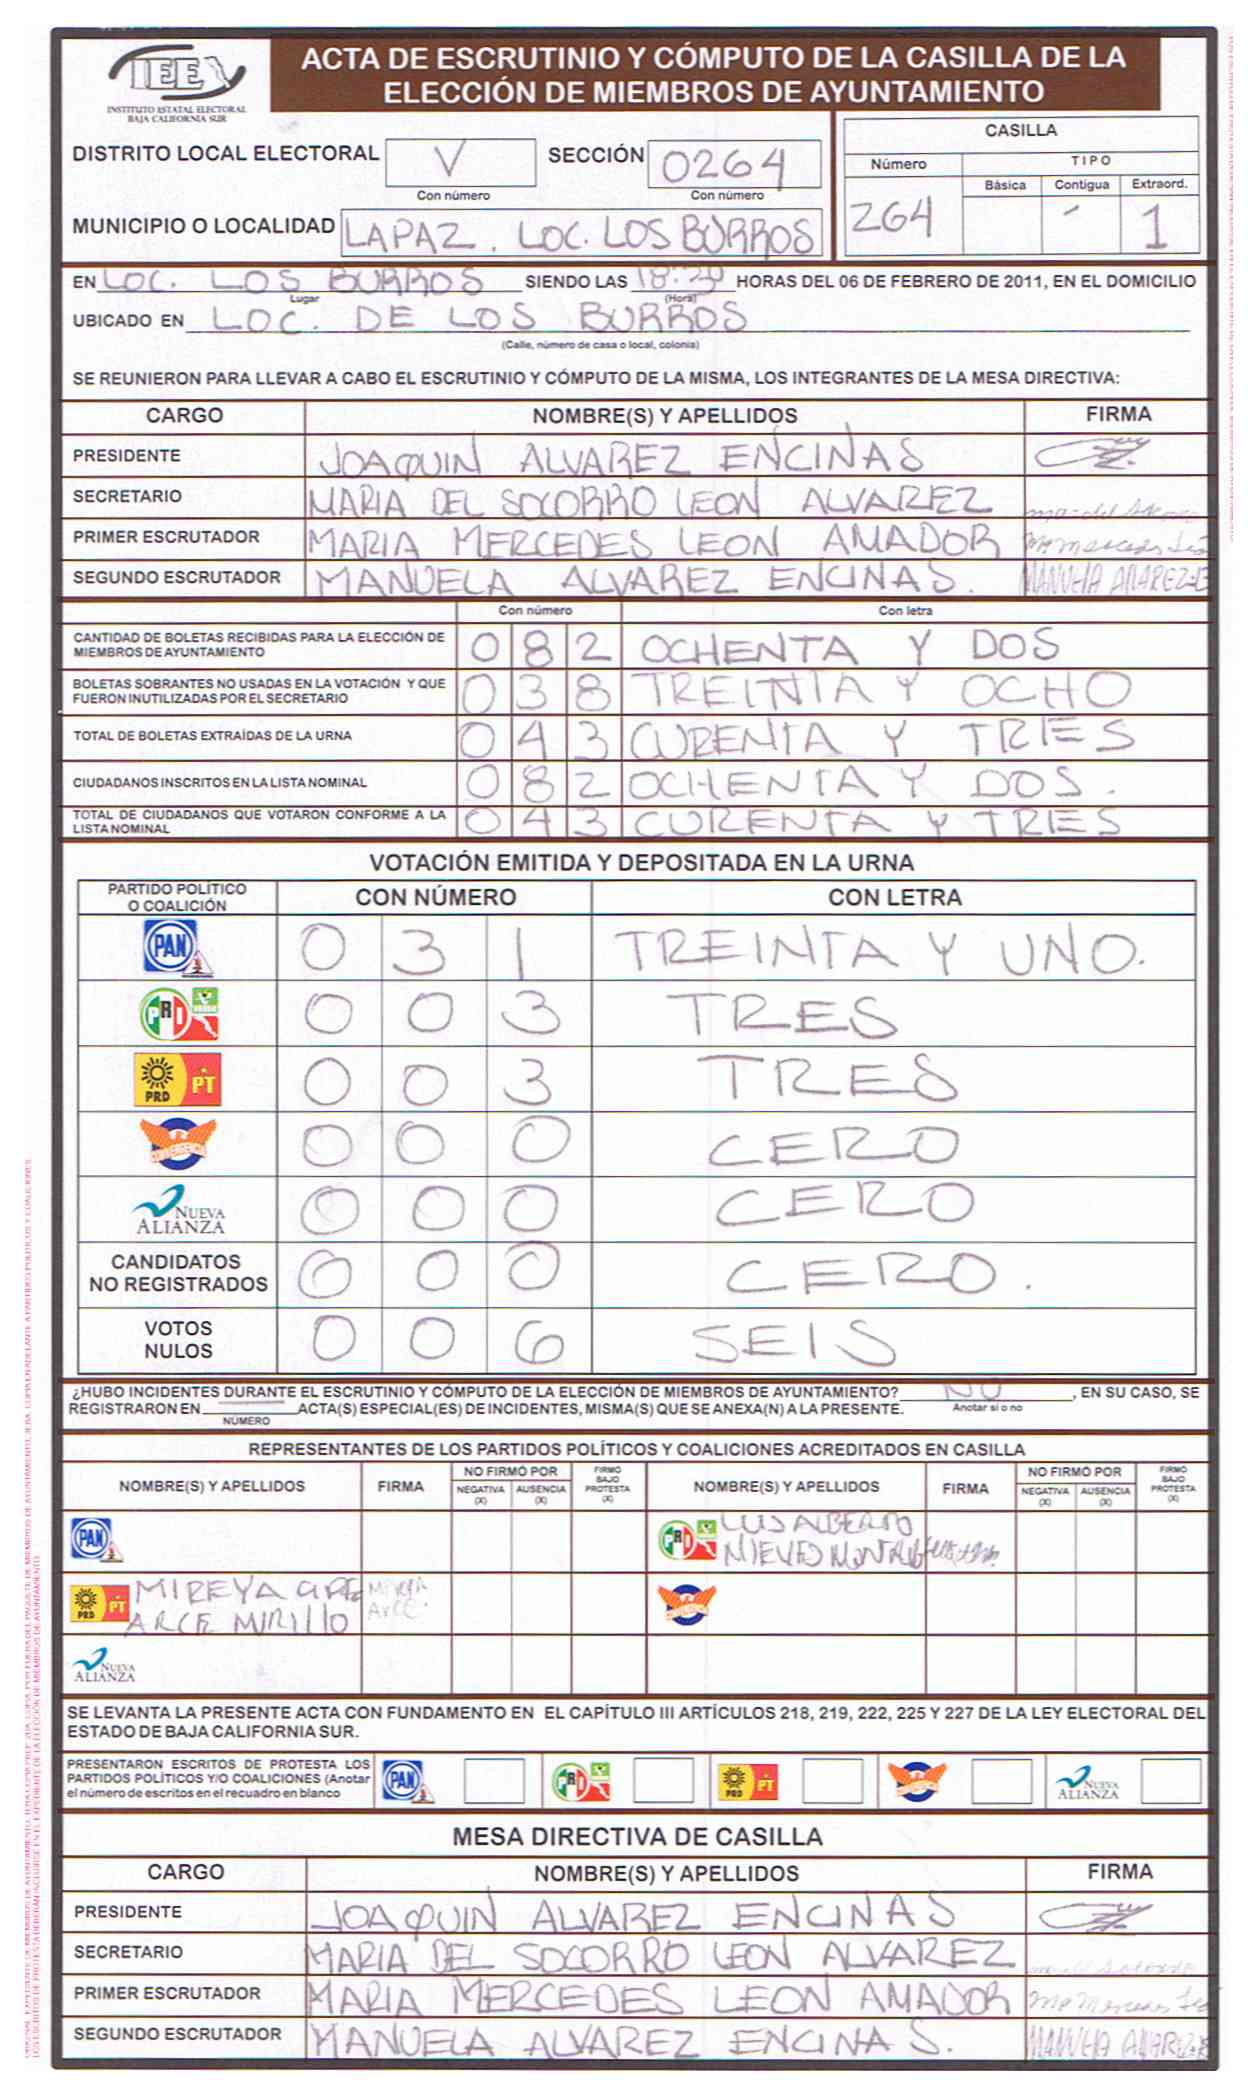 IEE
INSTITUTO ESTATAL ELECTORAL
BAJA CALIFORNIA SUR
ACTA DE ESCRUTINIO Y CÓMPUTO DE LA CASILLA DE LA
ELECCIÓN DE MIEMBROS DE AYUNTAMIENTO
DISTRITO LOCAL ELECTORAL V SECCIÓN 0264
Con número Con número
MUNICIPIO O LOCALIDAD LA PAZ. LOC. LOS BURROS
CASILLA
Número TIPO
Básica Contigua Extraord.
264 - 1
EN LOC. LOS BURROS SIENDO LAS 18:20 HORAS DEL 06 DE FEBRERO DE 2011, EN EL DOMICILIO
Lugar (Hora)
UBICADO EN LOC. DE LOS BURROS
(Calle, número de casa o local, colonia)
SE REUNIERON PARA LLEVAR A CABO EL ESCRUTINIO Y CÓMPUTO DE LA MISMA, LOS INTEGRANTES DE LA MESA DIRECTIVA:
CARGO NOMBRE(S) Y APELLIDOS FIRMA
PRESIDENTE JOAQUIN ALVAREZ ENCINAS
SECRETARIO MARIA DEL SOCORRO LEON ALVAREZ
PRIMER ESCRUTADOR MARIA MERCEDES LEON AMADOR Ma Mercedes
SEGUNDO ESCRUTADOR MANUELA ALVAREZ ENCINAS.
Con número Con letra
CANTIDAD DE BOLETAS RECIBIDAS PARA LA ELECCIÓN DE
MIEMBROS DE AYUNTAMIENTO 0 8 2 OCHENTA Y DOS
BOLETAS SOBRANTES NO USADAS EN LA VOTACIÓN Y QUE
FUERON INUTILIZADAS POR EL SECRETARIO 0 3 8 TREINTA Y OCHO
TOTAL DE BOLETAS EXTRAÍDAS DE LA URNA 0 4 3 CURENTA Y TRES
CIUDADANOS INSCRITOS EN LA LISTA NOMINAL 0 8 2 OCHENTA Y DOS.
TOTAL DE CIUDADANOS QUE VOTARON CONFORME A LA
LISTA NOMINAL 0 4 3 CURENTA Y TRES
VOTACIÓN EMITIDA Y DEPOSITADA EN LA URNA
PARTIDO POLÍTICO
O COALICIÓN CON NÚMERO CON LETRA
PAN 0 3 1 TREINTA Y UNO.
PRI 0 0 3 TRES
PRD PT 0 0 3 TRES
CONVERGENCIA 0 0 0 CERO
NUEVA
ALIANZA 0 0 0 CERO
CANDIDATOS
NO REGISTRADOS 0 0 0 CERO.
VOTOS
NULOS 0 0 6 SEIS
¿HUBO INCIDENTES DURANTE EL ESCRUTINIO Y CÓMPUTO DE LA ELECCIÓN DE MIEMBROS DE AYUNTAMIENTO? NO, EN SU CASO, SE
Anotar si o no
REGISTRARON EN ACTA(S) ESPECIAL(ES) DE INCIDENTES, MISMA(S) QUE SE ANEXA(N) A LA PRESENTE.
NÚMERO
REPRESENTANTES DE LOS PARTIDOS POLÍTICOS Y COALICIONES ACREDITADOS EN CASILLA
NOMBRE(S) Y APELLIDOS FIRMA NO FIRMÓ POR NEGATIVA (X) AUSENCIA (X) FIRMÓ BAJO PROTESTA (X) NOMBRE(S) Y APELLIDOS FIRMA NO FIRMÓ POR NEGATIVA (X) AUSENCIA (X) FIRMÓ BAJO PROTESTA (X)
PAN PRI LUIS ALBERTO
NIEVES
PRD PT MIREYA MIREYA CONVERGENCIA
ARCE MIRILLO ARCE
NUEVA
ALIANZA
SE LEVANTA LA PRESENTE ACTA CON FUNDAMENTO EN EL CAPÍTULO III ARTÍCULOS 218, 219, 222, 225 Y 227 DE LA LEY ELECTORAL DEL
ESTADO DE BAJA CALIFORNIA SUR.
PRESENTARON ESCRITOS DE PROTESTA LOS
PARTIDOS POLÍTICOS Y/O COALICIONES (Anotar
el número de escritos en el recuadro en blanco
PAN PRI PRD PT CONVERGENCIA NUEVA ALIANZA
MESA DIRECTIVA DE CASILLA
CARGO NOMBRE(S) Y APELLIDOS FIRMA
PRESIDENTE JOAQUIN ALVAREZ ENCINAS
SECRETARIO MARIA DEL SOCORRO LEON ALVAREZ
PRIMER ESCRUTADOR MARIA MERCEDES LEON AMADOR Ma Mercedes
SEGUNDO ESCRUTADOR MANUELA ALVAREZ ENCINAS.